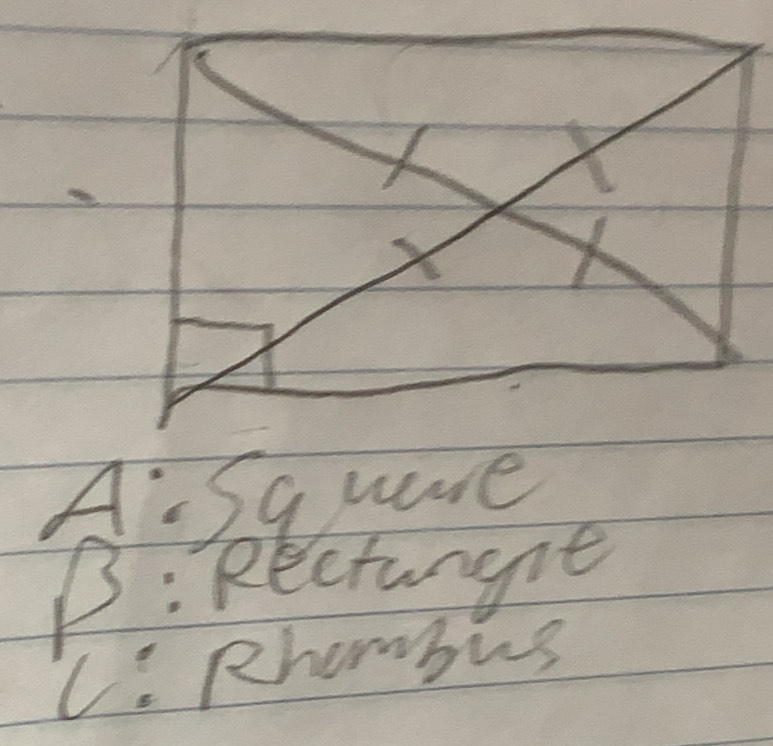 A: Square
B: Rectangle
C: Rhombus